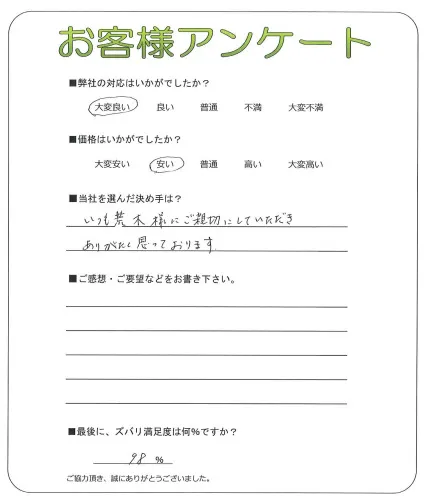 お客様アンケート
■弊社の対応はいかがでしたか？
大変良い 良い 普通 不満 大変不満
■価格はいかがでしたか？
大変安い 安い 普通 高い 大変高い
■当社を選んだ決め手は？
いつも荒木様にご親切にしていただき
ありがたく思っております。
■ご感想・ご要望などをお書き下さい。
■最後に、ズバリ満足度は何％ですか？
98 ％
ご協力頂き、誠にありがとうございました。